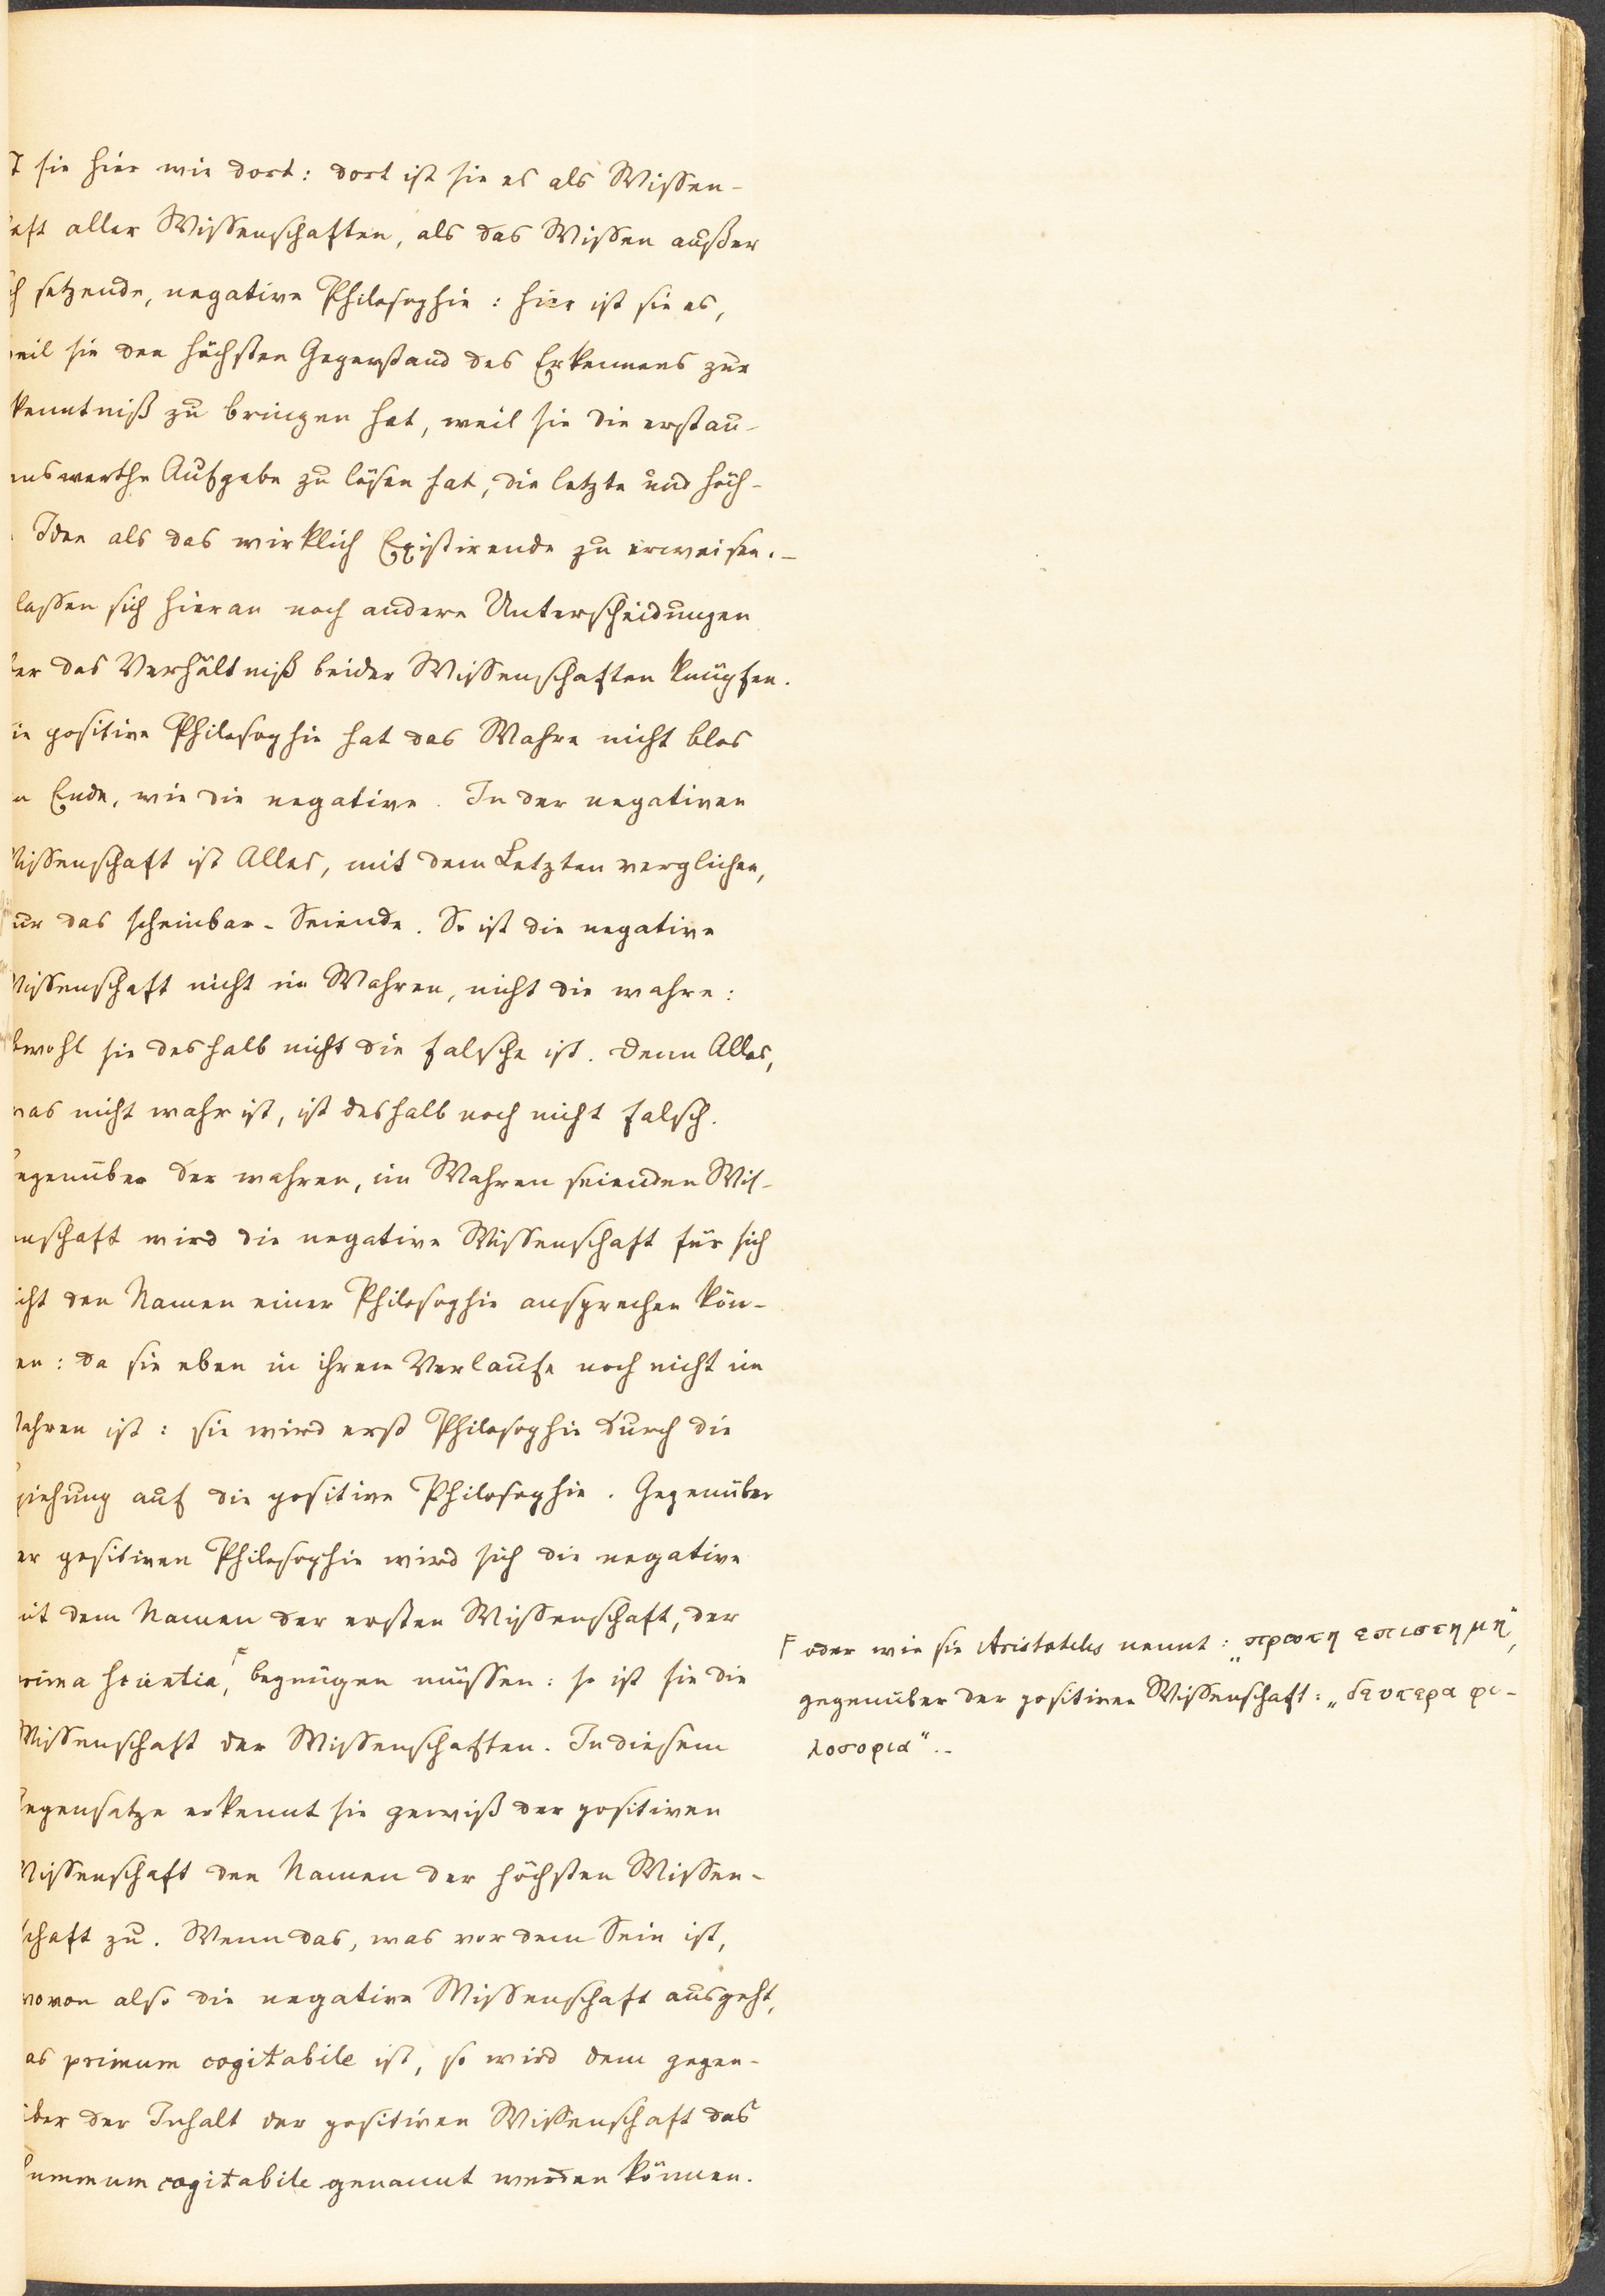 t sie hier wie dort: dort ist sie es als Wissen-
aft aller Wissenschaften, als das Wissen außer
ch setzende, negative Philosophie: hier ist sie es,
weil sie den höchsten Gegenstand des Erkennens zur
kenntniß zu bringen hat, weil sie die erstau-
enswerthe Aufgabe zu lösen hat, die letzte und höch-
Idee als das wirklich Existirende zu erweisen. –
lassen sich hieran noch andere Unterscheidungen
ber das Verhältniß beider Wissenschaften knüpfen.
ie positive Philosophie hat das Wahre nicht blos
m Ende, wie die negative. In der negativen
Wissenschaft ist Alles, mit dem Letzten verglichen,
nur das scheinbar-Seiende. So ist die negative
Wissenschaft nicht im Wahren, nicht die wahre:
bwohl sie deshalb nicht die falsche ist. Denn Alles,
was nicht wahr ist, ist deshalb noch nicht falsch.
Gegenüber der wahren, im Wahren seienden Wis-
enschaft wird die negative Wissenschaft für sich
icht den Namen einer Philosophie ansprechen kön-
en: da sie eben in ihrem Verlaufe noch nicht im
Wahren ist: sie wird erst Philosophie durch die
ziehung auf die positive Philosophie. Gegenüber
er positiven Philosophie wird sich die negative
it dem Namen der ersten Wissenschaft, der
prima scientia, F begnügen müssen: so ist sie die
Wissenschaft der Wissenschaften. In diesem
Gegensatze erkennt sie gewiß der positiven
Wissenschaft den Namen der höchsten Wissen-
schaft zu. Wenn das, was vor dem Sein ist,
wovon also die negative Wissenschaft ausgeht,
as primum cogitabile ist, so wird dem gegen-
über der Inhalt der positiven Wissenschaft das
Summum cogitabile genannt werden können.
F oder wie sie Aristoteles nennt: „πρωτη επιστημη“,
gegenüber der positiven Wissenschaft: „δευτερα φι-
λοσοφια“. –